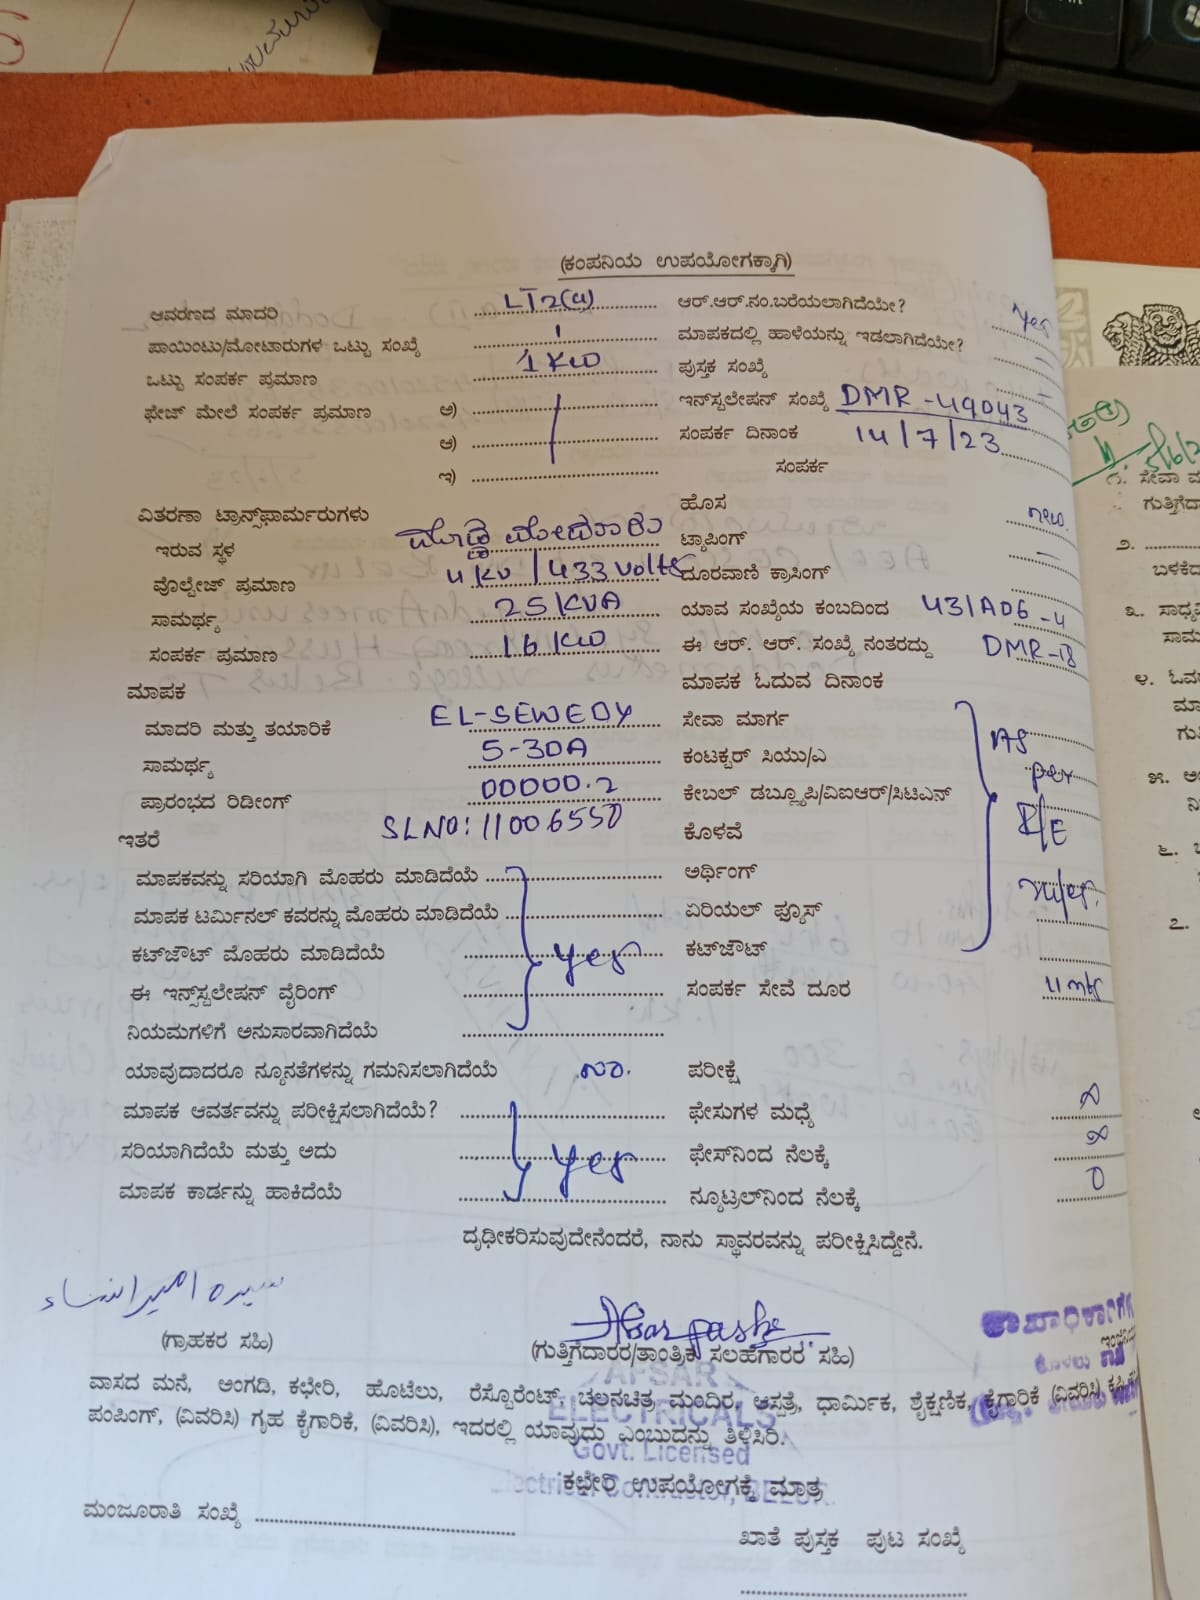 (ಕಂಪನಿಯ ಉಪಯೋಗಕ್ಕಾಗಿ)
ಆವರಣದ ಮಾದರಿ LT2(a) ಆರ್.ಆರ್.ನಂ.ಬರೆಯಲಾಗಿದೆಯೇ? Yes
ಪಾಯಿಂಟು/ಮೋಟಾರುಗಳ ಒಟ್ಟು ಸಂಖ್ಯೆ 1 ಮಾಪಕದಲ್ಲಿ ಹಾಳೆಯನ್ನು ಇಡಲಾಗಿದೆಯೇ? –
ಒಟ್ಟು ಸಂಪರ್ಕ ಪ್ರಮಾಣ 1 KW ಪುಸ್ತಕ ಸಂಖ್ಯೆ –
ಫೇಜ್ ಮೇಲೆ ಸಂಪರ್ಕ ಪ್ರಮಾಣ ಅ) ಇನ್‌ಸ್ಟಲೇಷನ್ ಸಂಖ್ಯೆ DMR -49043
ಆ) ಸಂಪರ್ಕ ದಿನಾಂಕ 14/7/23
ಇ) ಸಂಪರ್ಕ
ವಿತರಣಾ ಟ್ರಾನ್ಸ್‌ಫಾರ್ಮರುಗಳು ಹೊಸ new.
ಇರುವ ಸ್ಥಳ ಟ್ಯಾಪಿಂಗ್ –
ವೊಲ್ಟೇಜ್ ಪ್ರಮಾಣ 11 KV / 433 volts ದೂರವಾಣಿ ಕ್ರಾಸಿಂಗ್
ಸಾಮರ್ಥ್ಯ 25 KVA ಯಾವ ಸಂಖ್ಯೆಯ ಕಂಬದಿಂದ
ಸಂಪರ್ಕ ಪ್ರಮಾಣ 16 KW ಈ ಆರ್. ಆರ್. ಸಂಖ್ಯೆ ನಂತರದ್ದು DMR-18
ಮಾಪಕ ಮಾಪಕ ಓದುವ ದಿನಾಂಕ
ಮಾದರಿ ಮತ್ತು ತಯಾರಿಕೆ EL-SEWEDY ಸೇವಾ ಮಾರ್ಗ As
ಸಾಮರ್ಥ್ಯ 5-30A ಕಂಟಕ್ಟರ್ ಸಿಯು/ಎ per
ಪ್ರಾರಂಭದ ರಿಡೀಂಗ್ 00000.2 ಕೇಬಲ್ ಡಬ್ಲ್ಯೂಪಿ/ವಿಐಆರ್/ಸಿಟಿಎನ್
ಇತರೆ SLNO: 11006550 ಕೊಳವೆ
ಮಾಪಕವನ್ನು ಸರಿಯಾಗಿ ಮೊಹರು ಮಾಡಿದೆಯೆ ಅರ್ಥಿಂಗ್
ಮಾಪಕ ಟರ್ಮಿನಲ್ ಕವರನ್ನು ಮೊಹರು ಮಾಡಿದೆಯೆ ಏರಿಯಲ್ ಫ್ಯೂಸ್
ಕಟ್‌ಜೌಟ್ ಮೊಹರು ಮಾಡಿದೆಯೆ Yes ಕಟ್‌ಜೌಟ್
ಈ ಇನ್ಸ್‌ಸ್ಟಲೇಷನ್ ವೈರಿಂಗ್ ಸಂಪರ್ಕ ಸೇವೆ ದೂರ 11 mts
ನಿಯಮಗಳಿಗೆ ಅನುಸಾರವಾಗಿದೆಯೆ
ಯಾವುದಾದರೂ ನ್ಯೂನತೆಗಳನ್ನು ಗಮನಿಸಲಾಗಿದೆಯೆ No. ಪರೀಕ್ಷೆ
ಮಾಪಕ ಆವರ್ತವನ್ನು ಪರೀಕ್ಷಿಸಲಾಗಿದೆಯೆ? ಫೇಸುಗಳ ಮಧ್ಯೆ
ಸರಿಯಾಗಿದೆಯೆ ಮತ್ತು ಅದು Yes ಫೇಸ್‌ನಿಂದ ನೆಲಕ್ಕೆ
ಮಾಪಕ ಕಾರ್ಡನ್ನು ಹಾಕಿದೆಯೆ ನ್ಯೂಟ್ರಲ್‌ನಿಂದ ನೆಲಕ್ಕೆ 0
ದೃಢೀಕರಿಸುವುದೇನೆಂದರೆ, ನಾನು ಸ್ಥಾವರವನ್ನು ಪರೀಕ್ಷಿಸಿದ್ದೇನೆ.
(ಗ್ರಾಹಕರ ಸಹಿ) (ಗುತ್ತಿಗೆದಾರರ/ತಾಂತ್ರಿಕ ಸಲಹೆಗಾರರ ಸಹಿ)
ವಾಸದ ಮನೆ, ಅಂಗಡಿ, ಕಛೇರಿ, ಹೊಟೆಲು, ರೆಸ್ಟೊರೆಂಟ್, ಚಲನಚಿತ್ರ ಮಂದಿರ, ಆಸ್ಪತ್ರೆ, ಧಾರ್ಮಿಕ, ಶೈಕ್ಷಣಿಕ, ಕೈಗಾರಿಕೆ (ವಿವರಿಸಿ)
ಪಂಪಿಂಗ್, (ವಿವರಿಸಿ) ಗೃಹ ಕೈಗಾರಿಕೆ, (ವಿವರಿಸಿ), ಇದರಲ್ಲಿ ಯಾವುದು ಎಂಬುದನ್ನು ತಿಳಿಸಿರಿ.
AFSAR
ELECTRICALS
Govt. Licensed
ಕಛೇರಿ ಉಪಯೋಗಕ್ಕೆ ಮಾತ್ರ
ಮಂಜೂರಾತಿ ಸಂಖ್ಯೆ
ಖಾತೆ ಪುಸ್ತಕ ಪುಟ ಸಂಖ್ಯೆ